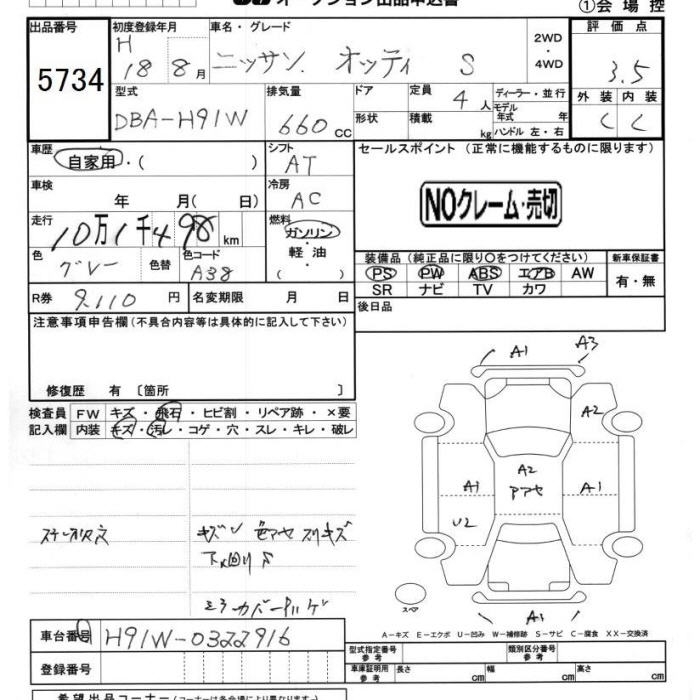 オークション出品申込書
①会場控
出品番号 初度登録年月 車名・グレード 評価点
5734 H 18 8月 ニッサン オッティ S 2WD・4WD 3.5
型式 排気量 ドア 定員 ディーラー・並行 外装 内装
DBA-H91W 660cc 4人 モデル年式 年 C C
形状 積載 kg ハンドル 左・右
車歴 自家用・( ) シフト AT セールスポイント (正常に機能するものに限ります)
車検 年 月( 日) 冷房 AC
NOクレーム・売切
走行 10万1千498km 燃料 ガソリン・軽油・( )
色 グレー 色替 色コード A38
装備品 (純正品に限り○をつけてください) 新車保証書
PS PW ABS エアB AW 有・無
SR ナビ TV カワ
R券 9,110円 名変期限 月 日
後日品
注意事項申告欄(不具合内容等は具体的に記入して下さい)
修復歴 有〔箇所 〕
検査員 FW キズ・飛石・ヒビ割・リペア跡・×要
記入欄 内装 キズ・汚レ・コゲ・穴・スレ・キレ・破レ
A1 A3
A2
A2
A1 A1
U2
キズ
下回りS
ミラーカバー
スペア
A1
A-キズ E-エクボ U-凹み W-補修跡 S-サビ C-腐食 XX-交換済
車台番号 H91W-0322916
型式指定番号 参考 類別区分番号 参考
登録番号 車庫証明用 参考 長さ cm 幅 cm 高さ cm
希望出品コーナー(コーナーは各会場により異なります→)